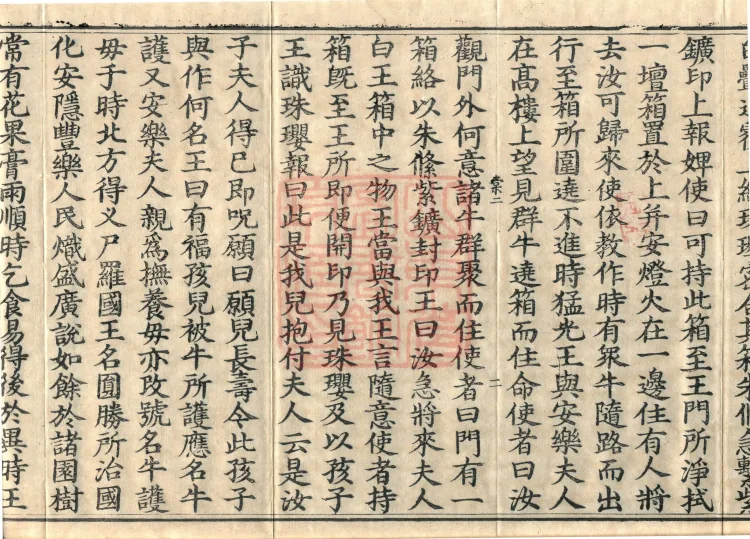 鑛印上報婢使曰可持此箱至王門所淨拭
一壇箱置於上并安燈火在一邊住有人將
去汝可歸來使依教作時有衆牛隨路而出
行至箱所圍遶不進時猛光王與安樂夫人
在髙樓上望見群牛遶箱而住命使者曰汝
二
觀門外何意諸牛群聚而住使者曰門有一
箱絡以朱絛紫鑛封印王曰汝急將來夫人
白王箱中之物王當與我王言隨意使者持
箱旣至王所即便開印乃見珠瓔及以孩子
王識珠瓔報曰此是我兒抱付夫人云是汝
子夫人得已即呪願曰願兒長壽令此孩子
與作何名王曰有福孩兒被牛所護應名牛
護又安樂夫人親爲撫養毋亦改號名牛護
毋于時北方得叉尸羅國王名圓勝所治國
化安隱豐樂人民熾盛廣說如餘於諸園樹
常有花果膏雨順時乞食易得後於異時王